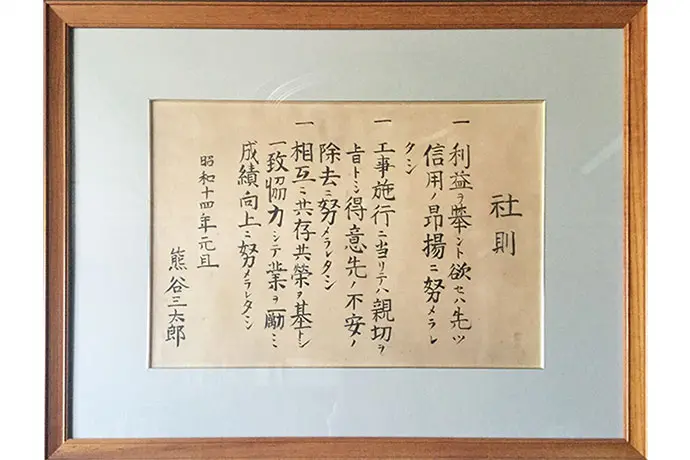 社則
一 利益ヲ挙ント欲セハ先ツ
信用ノ昂揚ニ努メラレ
タシ
一 工事施行ニ当リテハ親切ヲ
旨トシ得意先ノ不安ノ
除去ニ努メラレタシ
一 相互ニ共存共榮ヲ基トシ
一致協力シテ業ヲ励ミ
成績向上ニ努メラレタシ
昭和十四年元旦
熊谷三太郎